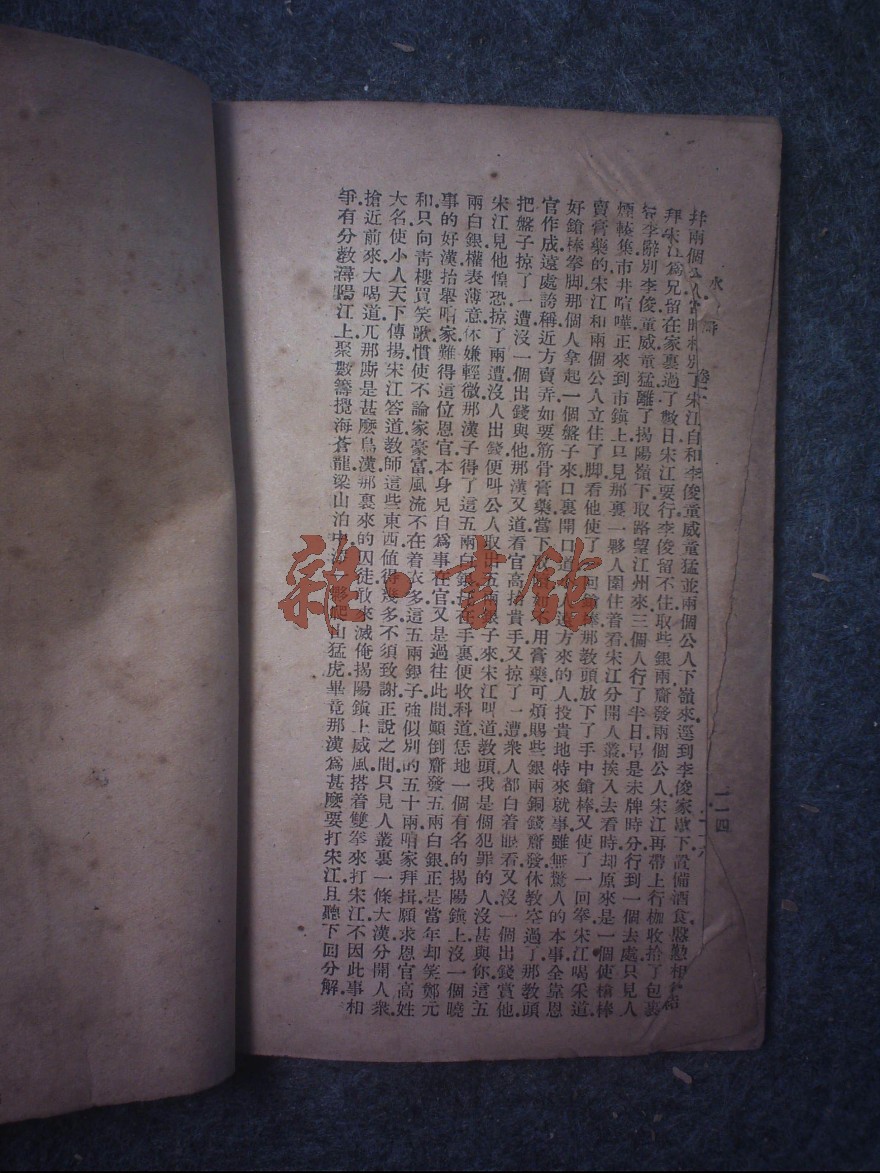 水 卷
一一四
兩個公人 相別了宋江自和李俊童威童猛並兩個公人下嶺來逕到李俊家歇下置備酒食慇懃相
拜宋江爲兄留在家裏過了數日宋江要行李俊留不住取些銀兩齎發兩個公人宋江再帶上行枷收拾了包裹
李辭別李俊童威童猛離了揭陽嶺下取路望江州來三個人行了半日早是未牌時分行到一個去處只見人
煙輳集市井喧嘩正來到市鎮上只見那裏一夥人圍住着看宋江分開人叢挨入去看時却原來是一個使鎗棒
賣膏藥的宋江和兩個公人立住了脚看他使了一回鎗棒那教頭放下了手中鎗棒又使了一回拳宋江喝采道
好鎗棒拳脚那個人拿起一個盤子來口裏開口道 遠方來的人投貴地特來就事雖無驚人的本事全靠恩
官作成遠處誇稱近方賣弄如要筋骨膏藥當下取 如不用膏藥可煩賜些銀兩銅錢齎發休教空過了那教頭
把盤子掠了一遭沒一個出錢與他那漢又道看官高抬貴手又掠了一遭衆人都白着眼看又沒一個出錢賞他
宋江見他惶恐掠了兩遭沒人出錢便叫公人取出五兩銀子來宋江叫道教頭我是個犯罪的人沒甚與你這五
兩白銀權表薄意休嫌輕微那漢子得了這五兩白銀托在手裏便收科道恁地一個有名的揭陽鎮上沒一個曉
事的好漢抬舉咱家難得這位恩官本身見自爲事在官又是過往此間顛倒齎發五兩白銀正是當年却笑鄭元
和只向青樓買笑歌慣使不論家豪富風流不在着衣多這五兩銀子強似別的五十兩咱家拜揖願求恩官高姓
大名使小人天下傳揚宋江答道教師這些東西值得幾多不須致謝正說之間只見人叢裏一條大漢分開人衆
搶近前來大喝道兀那廝是甚麽鳥漢那裏來的囚徒敢來滅俺揭陽鎮上威風搭着雙拳來打宋江不因此事相
爭有分教潯陽江上聚數籌攪海蒼龍梁山泊中 爬山猛虎畢竟那漢爲甚麽要打宋江且聽下回分解
雜·書館